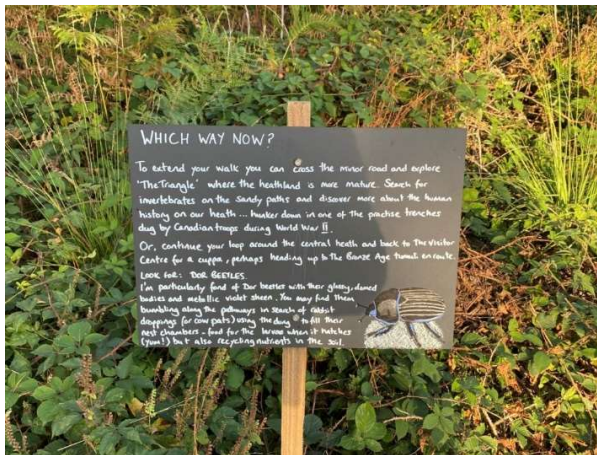 WHICH WAY NOW?
To extend your walk you can cross the minor road and explore
'The Triangle' where the heathland is more mature. Search for
invertebrates on the sandy paths and discover more about the human
history on our heath ... hunker down in one of the practise trenches
dug by Canadian troops during World War II.
Or, continue your loop around the central heath and back to The Visitor
Centre for a cuppa, perhaps heading up to the Bronze Age tumuli en route.
LOOK FOR: DOR BEETLES.
I'm particularly fond of Dor beetles with their glossy, domed
bodies and metallic violet sheen. You may find them
bumbling along the pathways in search of rabbit
droppings (or cow pats) using the dung to fill their
nest chambers - food for the larvae when it hatches
(yum!) but also recycling nutrients in the soil.